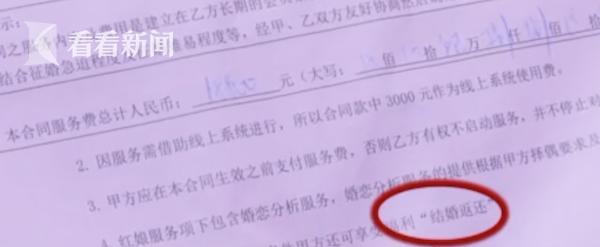 示:
看看新闻
费因是建立在乙方长期的会
之服务内
经甲、乙双方友好协商然
结合征婚急迫程度 易程度等,
佰 拾 万 仟 佰 拾
本合同服务费总计人民币: 元(大写:
2. 因服务需借助线上系统进行,所以合同款中3000元作为线上系统使用费。
3. 甲方应在本合同生效之前支付服务费,否则乙方有权不启动服务,并不停止对
4. 红娘服务项下包含婚恋分析服务,婚恋分析服务的提供根据甲方择偶要求及
甲方还可享受 利“结婚返还”